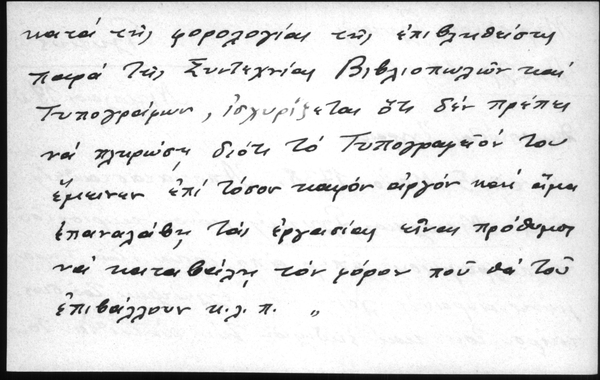 κατά τῆς φορολογίας τῆς ἐπιβληθείσης
παρά τῆς Συντεχνίας Βιβλιοπωλῶν καί
Τυπογράφων, ἰσχυρίζεται ὅτι δέν πρέπει
νά πληρώσῃ διότι τό Τυπογραφεῖόν του
ἔμεινεν ἐπί τόσον καιρόν ἀργόν καί ἅμα
ἐπαναλάβῃ τάς ἐργασίας εἶναι πρόθυμος
νά καταβάλῃ τόν φόρον πού θά τοῦ
ἐπιβάλλουν κ.λ.π. "